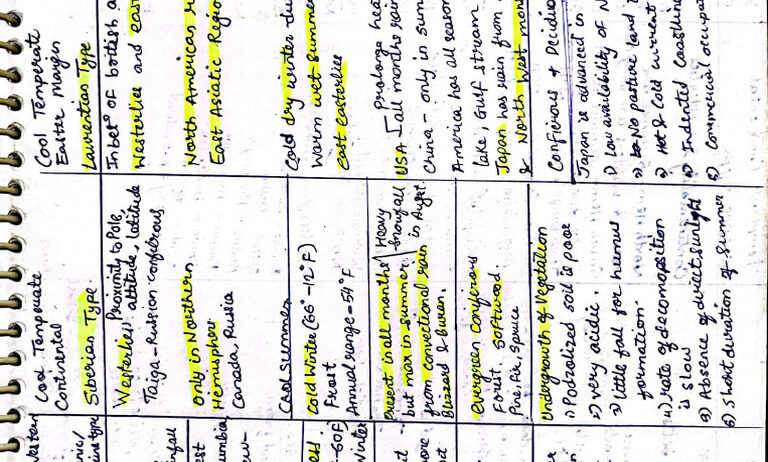 Cool Temperate
Easter Margin
Laurentian Type
In betⁿ of british
Westerlies and
North American
East Asiatic Regio
Cold dry winter du
Warm wet summe
east easterlies
prolonge hea
USA all months rain
China - only in sum
America has all season
lake, Gulf stream
Japan has rain from
& North West mon
Coniferous + Deciduo
Japan is advanced in
1) Low availability of N
2) No pasture land
3) Hot & Cold current
4) Indented Coastlin
5) Commercial occupat
Cool Temperate
Continental
Siberian Type
Proximity to Pole,
Westerlies, altitude, latitude
Taiga - Russian coniferous
only in Northern
Hemisphere
Canada, Russia
Cool summer
Cold Winter (66°-12°F)
Frost
Annual range - 54°F
Present in all months Heavy snowfall
but max in summer
from convectional rain in Augst.
Blizzard & Buran.
evergreen coniferous
Forest. Softwood.
Pine, Fir, Spruce
Undergrowth of Vegetation
1) Podzolized soil is poor
2) very acidic.
3) little fall for humus
formation.
4) rate of decomposition
is slow
5) Absence of direct sunlight
6) short duration of summer